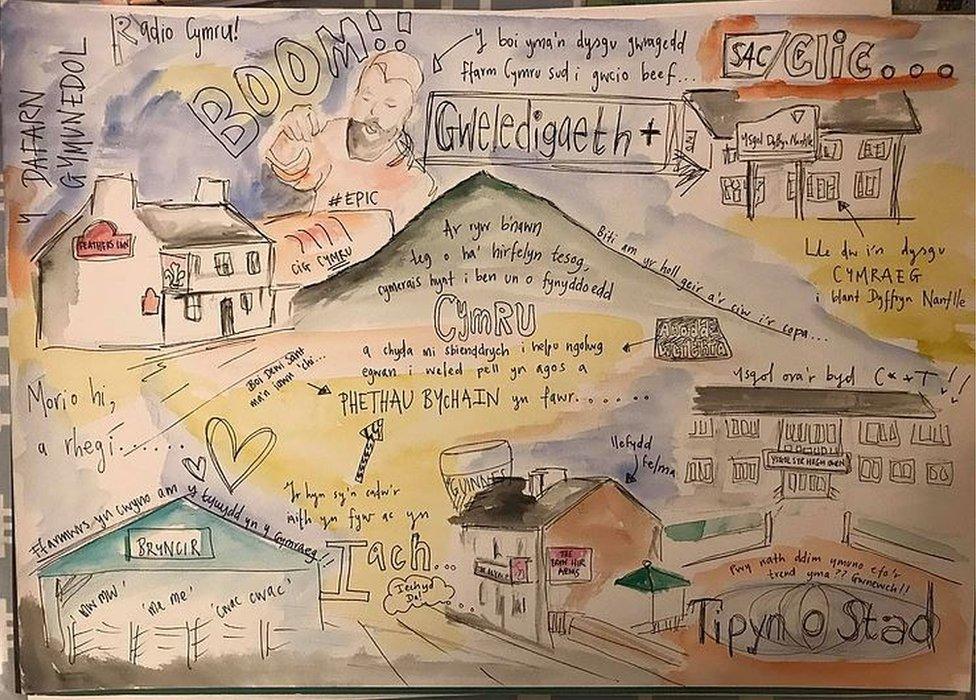 Radio Cymru!
Y DAFARN
GYMUNEDOL
BOOM!!
Y boi yma'n dysgu gwragedd
ffarm Cymru sud i gwcio beef...
S4C/Clic...
Gweledigaeth +
Ysgol Dyffryn Nantlle
#EPIC
CIG CYMRU
FEATHERS INN
Lle dw i'n dysgu
CYMRAEG
i blant Dyffryn Nantlle
Ar ryw b'nawn
teg o ha' hirfelyn tesog,
cymerais hynt i ben un o fynyddoedd
CYMRU
a chyda mi sbienddrych i helpu ngolwg
egwan i weled pell yn agos a
PHETHAU BYCHAIN yn fawr......
Biti am yr holl geir a'r ciw i'r copa...
Boi Dewi Sant
ma'n iawn 'chi...
Morio hi,
a rhegi......
Ysgol ora'r byd C**T!!!
YSGOL SYR HUGH OWEN
llefydd
felma
GUINNESS
Yr hyn sy'n cadw'r
iaith yn fyw ac yn
Iach...
Iechyd
Da!
Ffarmwrs yn cwyno am y tywydd yn y Gymraeg!!
BRYNCIR
'Mw Mw'
'Me me'
'cwac cwac'
THE
BRYN HIR
ARMS
Pwy nath ddim ymuno efo'r
trend yma?? Gwnewch!!
Tipyn o Stad